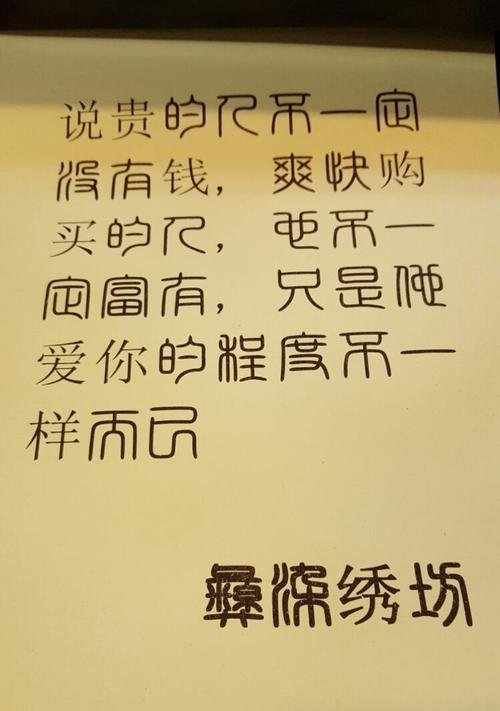 说贵的人不一定
没有钱，爽快购
买的人，也不一
定富有，只是他
爱你的程度不一
样而已
彝深绣坊